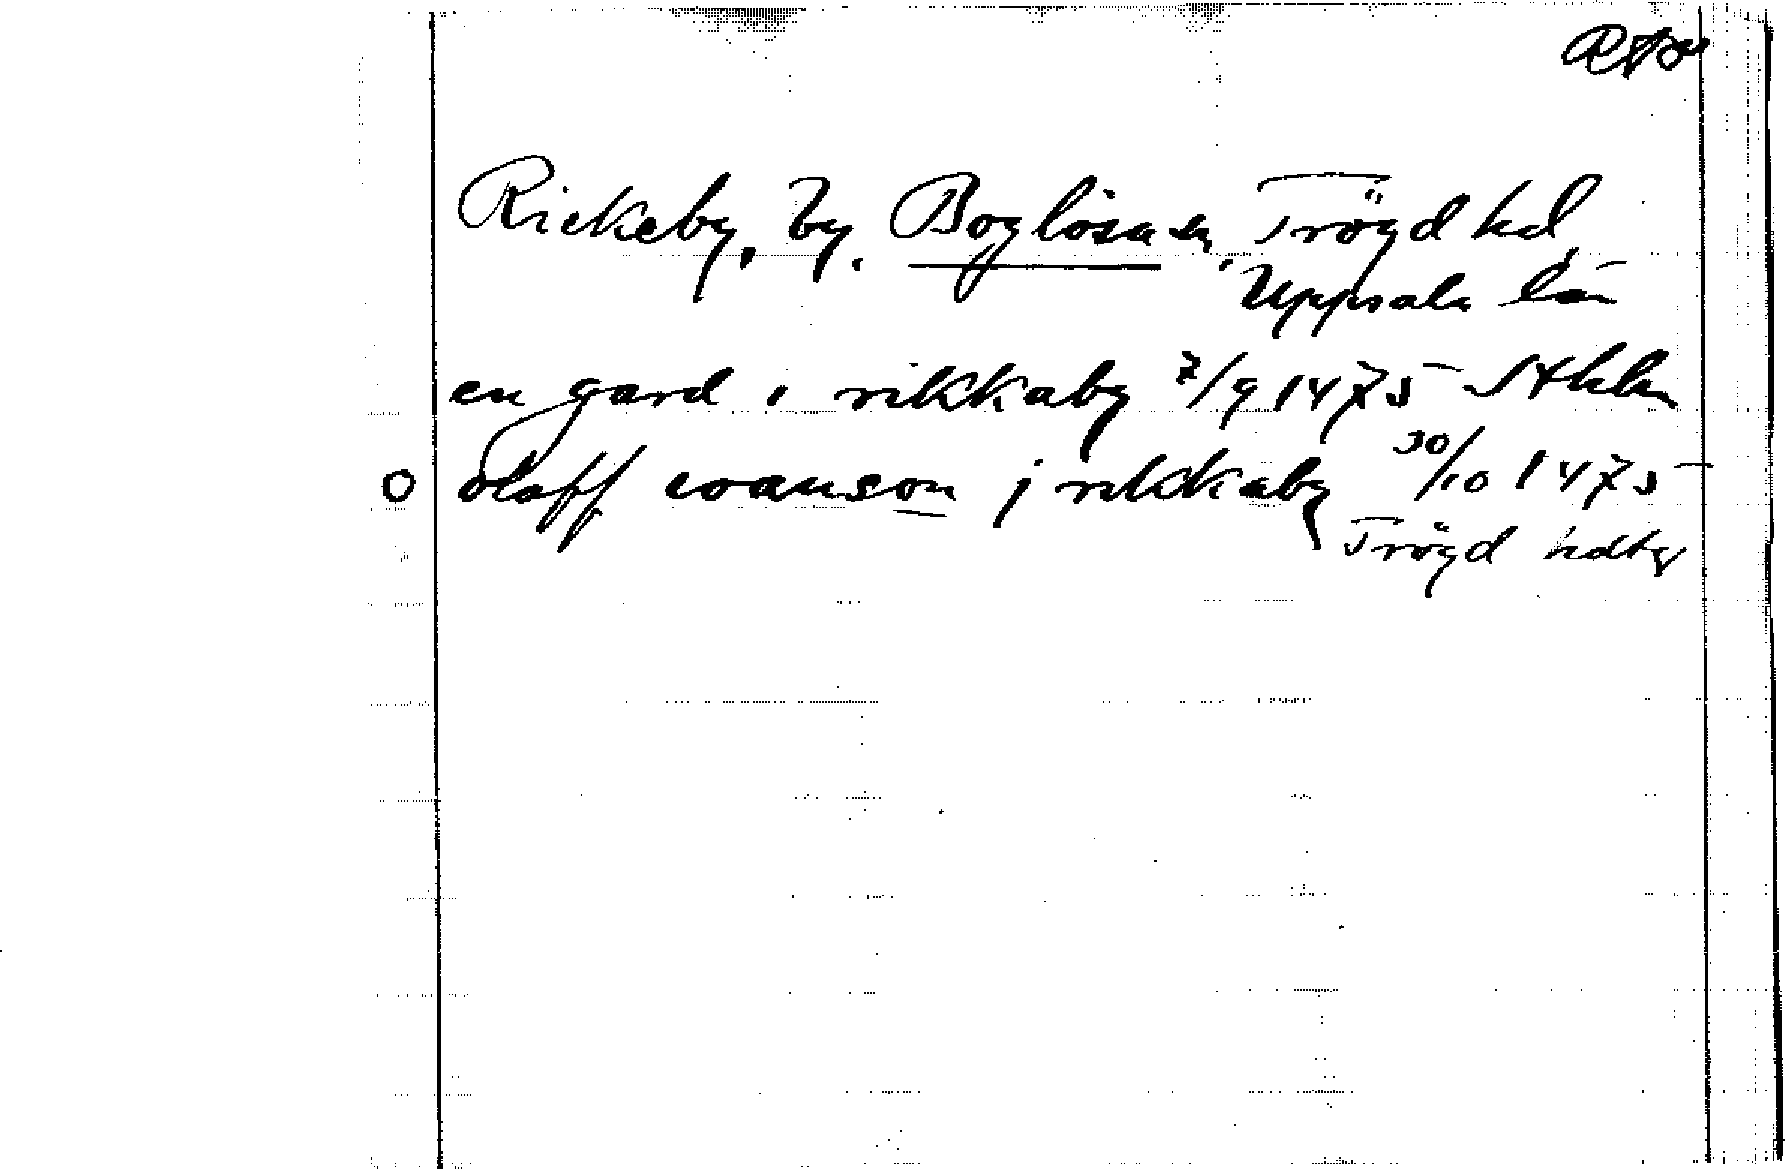 RAp
Rickeby, by, Boglösa sn, Trögd hd,
Uppsala län
en gard i rikkaby 7/9 1475 Sthlm
O olaff ioanson j rikkaby 30/10 1475
Trögd hdtg